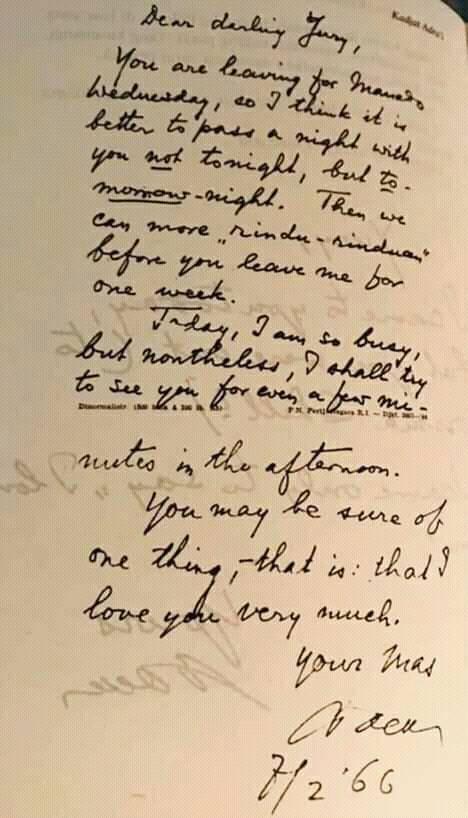 Kadjat Adra'i
Dear darling Yury,
You are leaving for Manado
Wednesday, so I think it is
better to pass a night with
you not tonight, but to-
morrow-night. Then we
can more „rindu-rinduan"
before you leave me for
one week.
Today, I am so busy,
but nontheless, I shall try
to see you for even a few mi-
Disnormalisir. P.N. Pertj. Negara R.I.
nutes in the afternoon.
You may be sure of
one thing, - that is: that I
love you very much.
Your Mas
7/2 '66